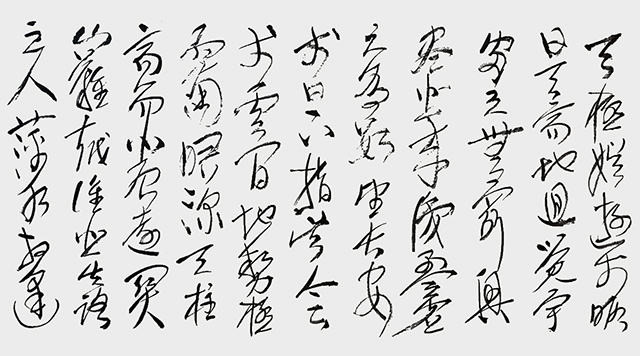 天極娛遊於暇
日天高地迥覺宇
宙之無窮興
盡悲來識盈虛
之有數望長安
於日下指吳會
於雲間地勢極
而南溟深天柱
高而北辰遠關
山難越誰悲失路
之人萍水相逢